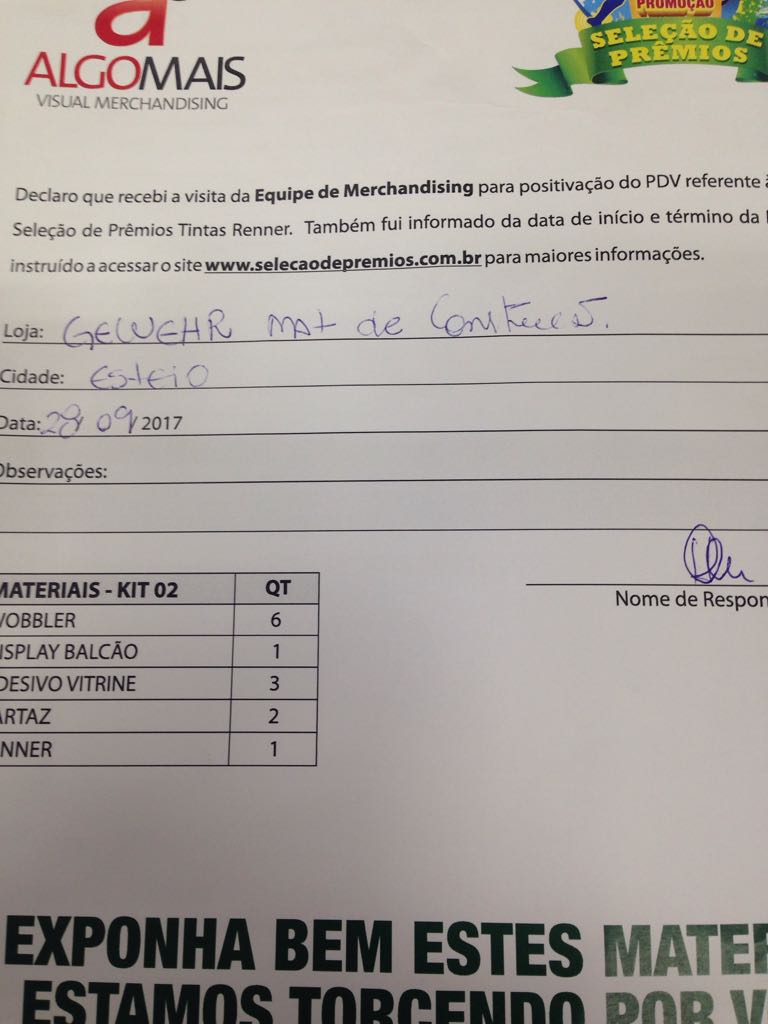 ALGOMAIS
VISUAL MERCHANDISING
PROMOÇÃO
SELEÇÃO DE
PRÊMIOS
Declaro que recebi a visita da Equipe de Merchandising para positivação do PDV referente à
Seleção de Prêmios Tintas Renner. Também fui informado da data de início e término da
instruído a acessar o site www.selecaodepremios.com.br para maiores informações.
Loja: GEWEHR mat de
Cidade: Esteio
Data: 28/09/2017
Observações:
Nome de Respon
MATERIAIS - KIT 02 QT
WOBBLER 6
ISPLAY BALCÃO 1
DESIVO VITRINE 3
ARTAZ 2
NNER 1
EXPONHA BEM ESTES MATER
ESTAMOS TORCENDO POR V